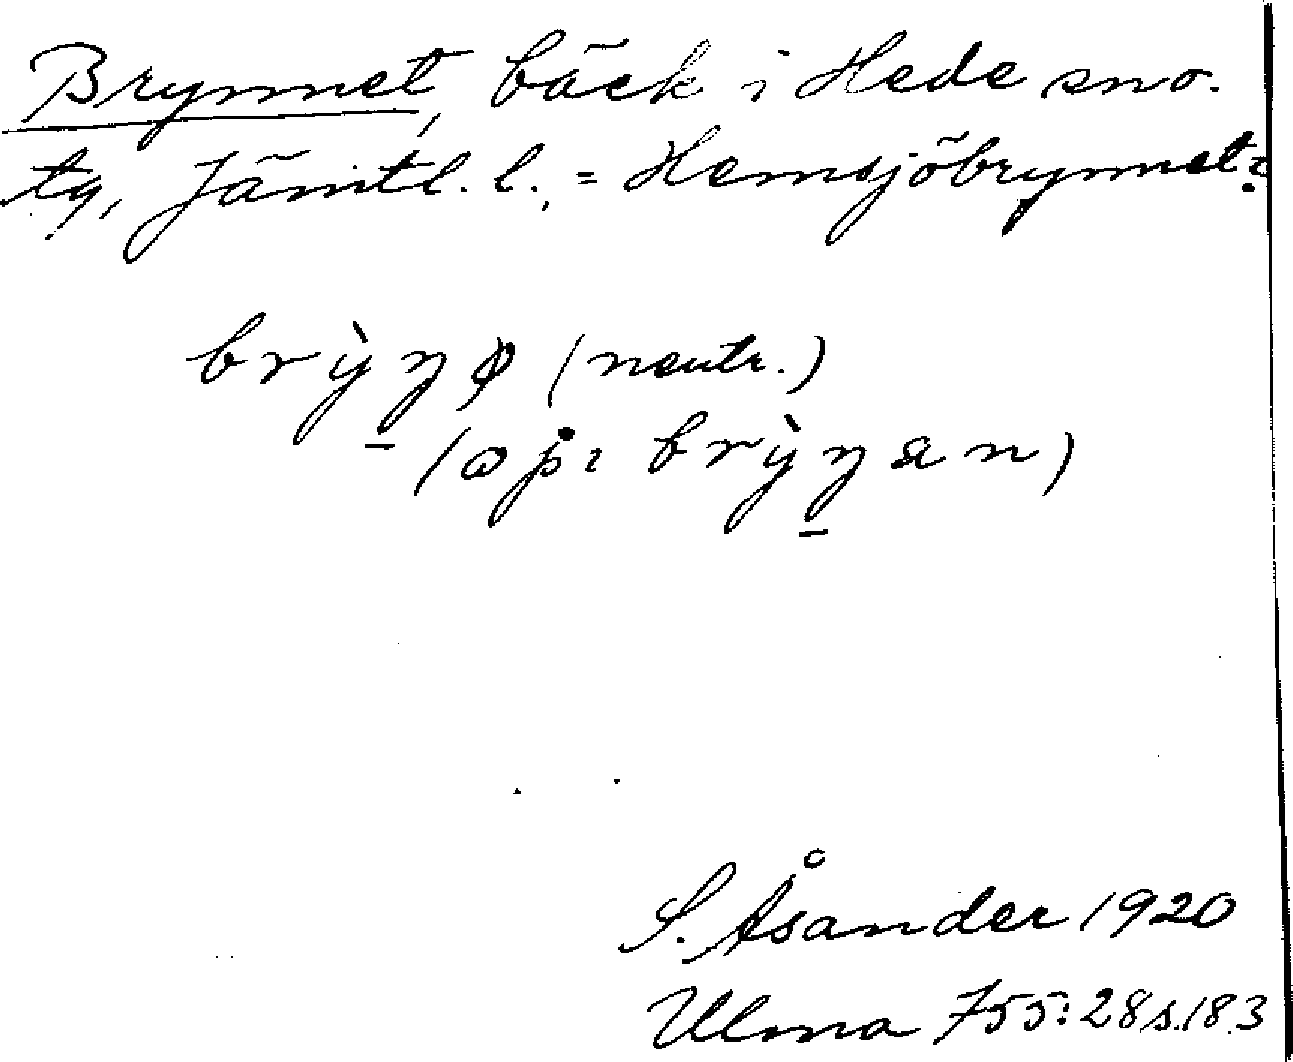 Brynnet, bäck i Hede sno.
tg, Jämtl. l. = Hemsjöbrynnet?
brỳnø (neutr.)
brỳnan)
S. Åsander 1920
Ulma 755:28 s.183